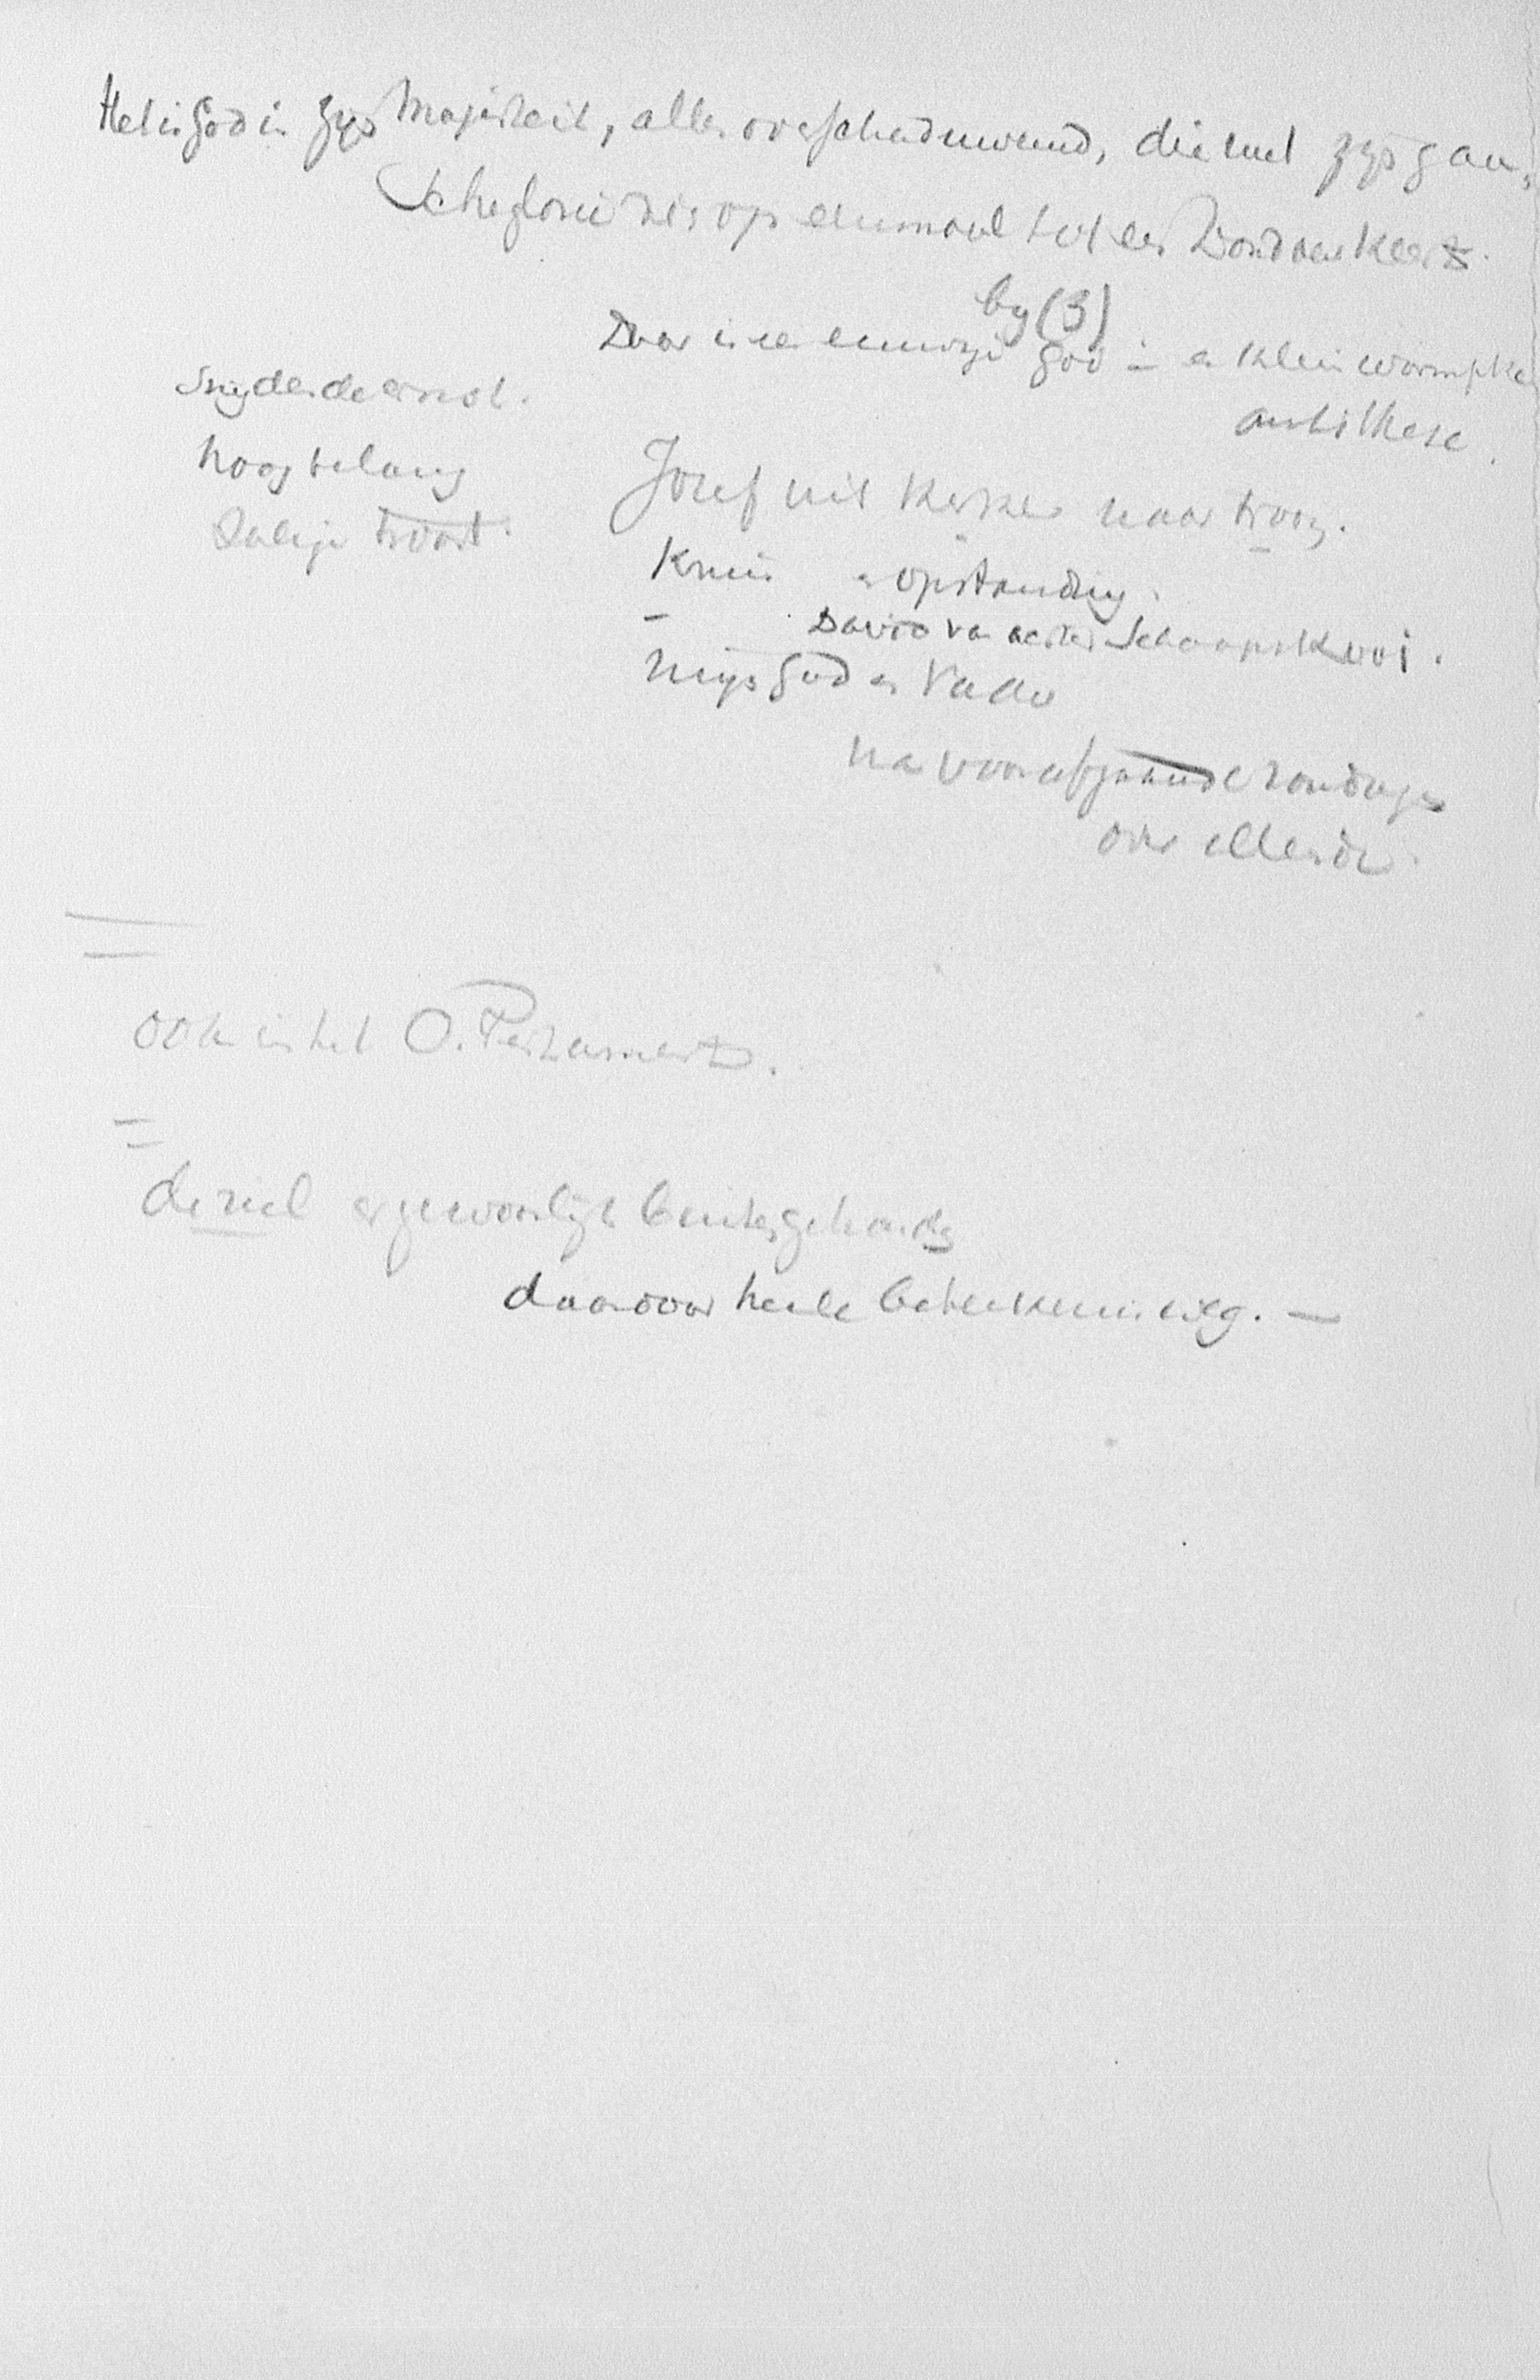 Het is God in Zyn Majesteit, alles overschaduwend, die met zyn gan-
sche glorie zich op eenmaal tot een Zondaar keert.
by (3)
Daar is een eeuwige God - en klein wormpke
antithese.
Snydende ernst.
hoog belang
Zalige troost.
Jozef uit kerker naar troon.
Kruis en opstanding.
David van achter schaapskooi.
Myn God en Vader
na voorafgaande zondagen
over ellende.
ook in het O. Testament.
de ziel er gewoonlijk buiten gehouden
daardoor heele beteekenis weg. —